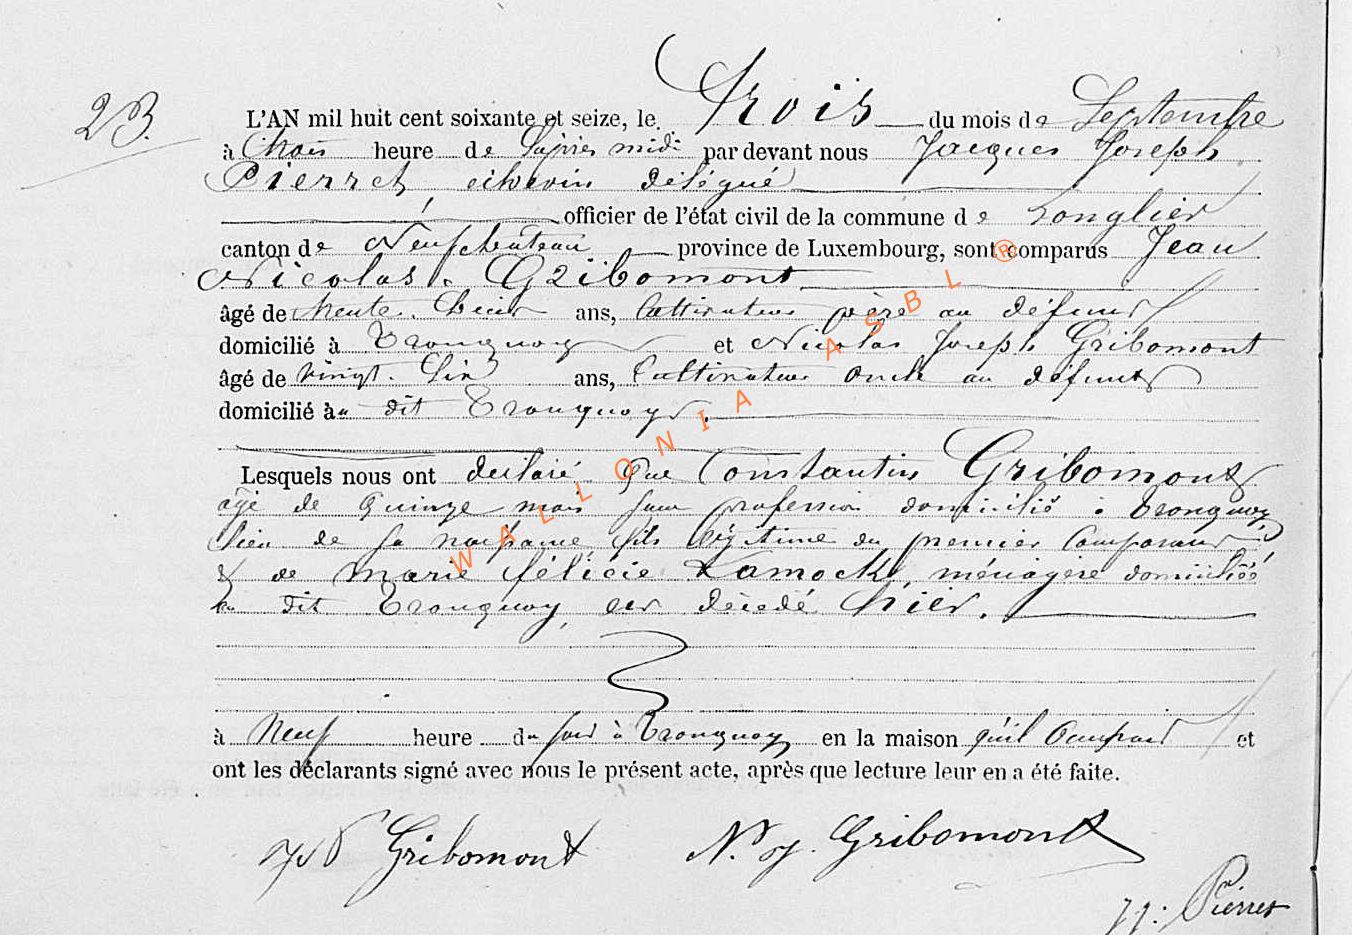 23.
L'AN mil huit cent soixante et seize, le trois du mois de Septembre
à trois heure de l'après midi par devant nous Jacques Joseph
Pierret, échevin délégué
officier de l'état civil de la commune de Longlier
canton de Neufchateau province de Luxembourg, sont comparus Jean
Nicolas Gribomont
âgé de trente ans, Cultivateur père au défunt
domicilié à Tronquoy et Nicolas Joseph Gribomont
âgé de vingt-six ans, Cultivateur oncle au défunt
domicilié au dit Tronquoy.
Lesquels nous ont déclaré que Constantin Gribomont
âgé de quinze mois sans profession domicilié à Tronquoy
lieu de sa naissance, fils légitime du premier Comparant
& de Marie félicie Lamock, ménagère domiciliée
au dit Tronquoy, est décédé hier.
à Neuf heure du soir à Tronquoy en la maison qu'il occupait et
ont les déclarants signé avec nous le présent acte, après que lecture leur en a été faite.
Gribomont N. J. Gribomont
JJ. Pierret
WALLONIA ASBL ®